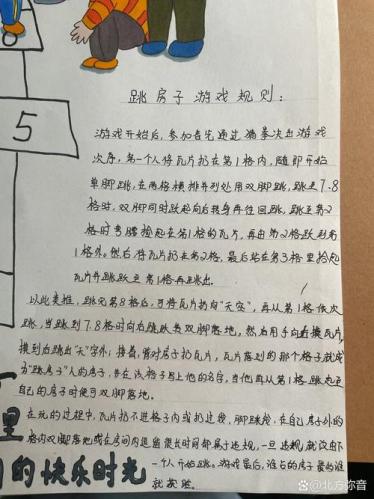 5
跳房子游戏规则：
游戏开始后，参加者先通过猜拳决出游戏
次序，第一个人将瓦片扔在第1格内，随即开始
单脚跳，在两格横排并列处用双脚跳，跳至7.8
格时，双脚同时跃起向后转身再往回跳，跳至第2
格时弯腰捡起在第1格的瓦片，再由第2格跃到第1
格外。然后将瓦片扔去第2格，最后站在第3格里捡起
瓦片并跳跃至第1格再跳出。
以此类推，跳完第8格后，可将瓦片扔向“天字”，再从第1格依次
跳，当跳到7.8格时向后跳跃去双脚落地，然后用手向后摸瓦片，
摸到后跳出“天”字外；接着，背对房子扔瓦片，瓦片落到的那个格子就成
为“跳房子”人的房子，并在该格写上他的名字，当他再从第1格跳起至
自己的房子时便可双脚落地。
在玩的过程中，瓦片扔不进格子内或扔过线，脚踩线，在自己房子外的
格内双脚落地或在房间内逗留很长时间都属于违规，一旦违规就该由下
一个人开始跳。游戏最后，谁占的房子最多谁
就获胜。
里
的快乐时光
@北方弥音